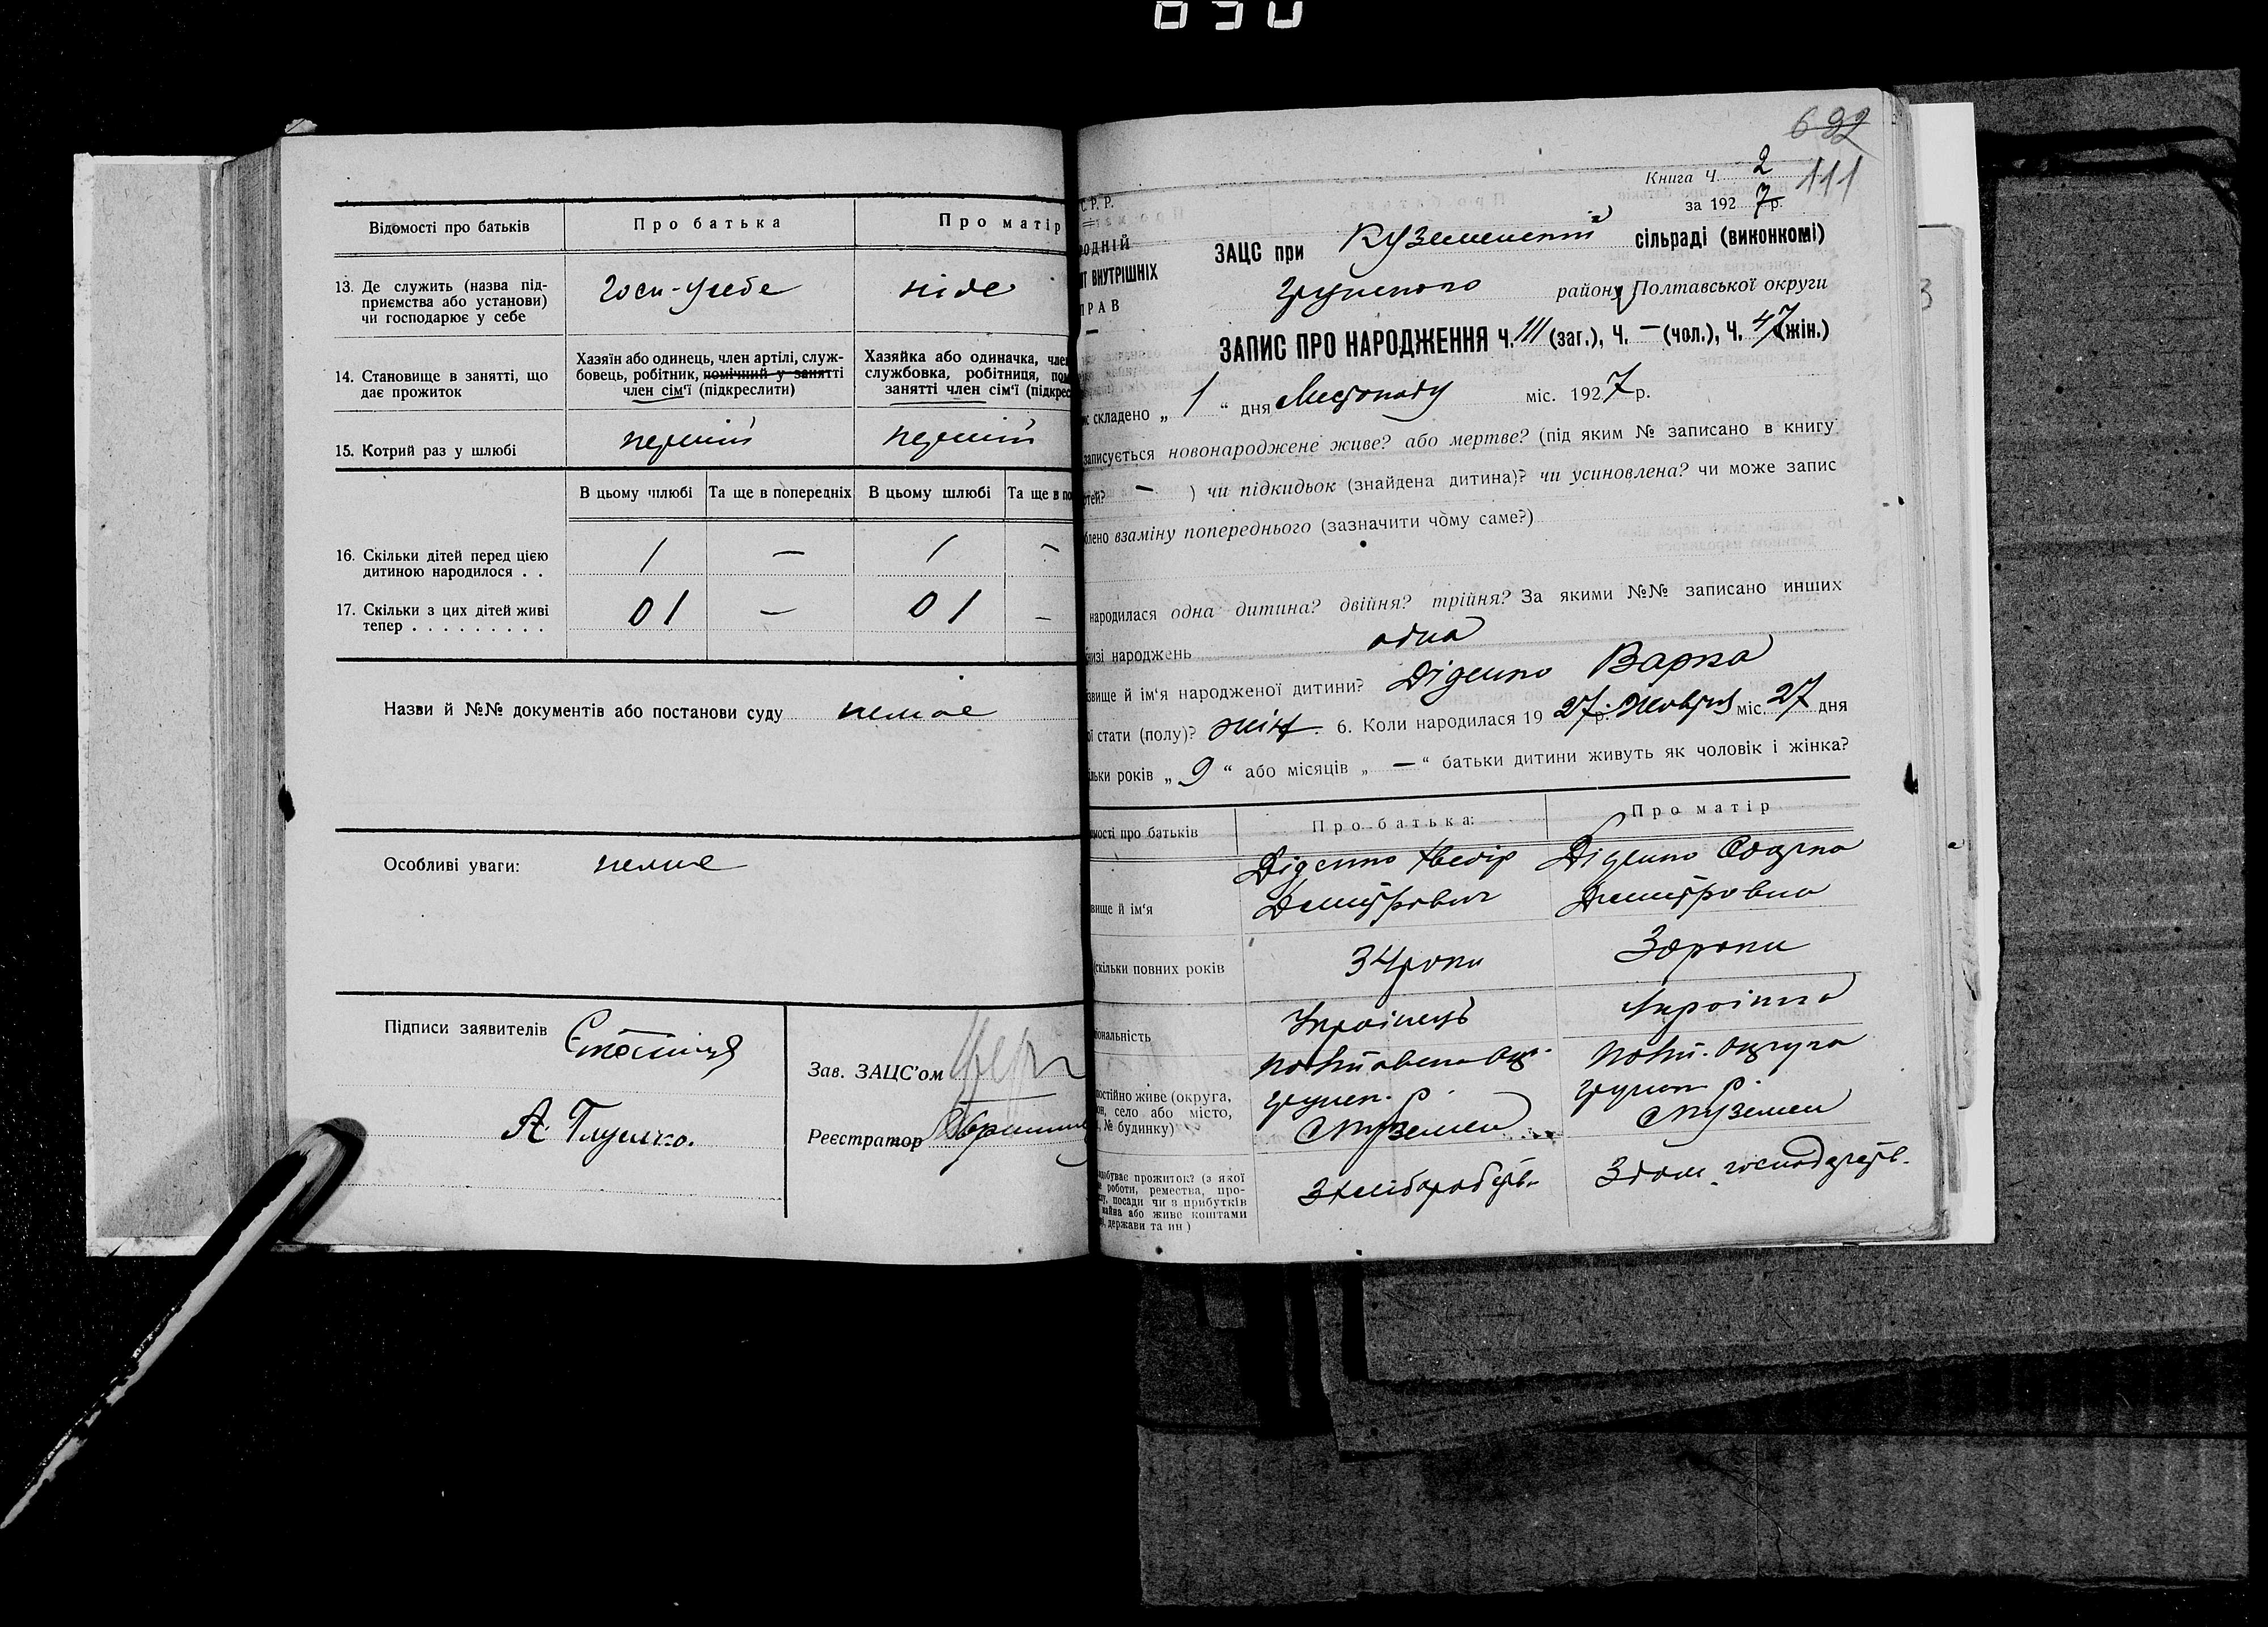 Відомості про батьків
Про батька
Про матір
13. Де служить (назва під-
приємства або установи)
чи господарює у себе
Госп-у себе
ніде
14. Становище в занятті, що
дає прожиток
Хазяїн або одинець, член артілі, служ-
бовець, робітник, помічний у занятті
член сім'ї (підкреслити)
Хазяйка або одиначка, член
службовка, робітниця, пом
занятті член сім'ї (підкрес
15. Котрий раз у шлюбі
перший
перший
В цьому шлюбі
Та ще в попередніх
В цьому шлюбі
Та ще в по
16. Скільки дітей перед цією
дитиною народилося . .
1 — 1 -
17. Скільки з цих дітей живі
тепер . . . . . . . . .
01 — 01 -
Назви й №№ документів або постанови суду немає
Особливі уваги: немає
Підписи заявителів
А Глушко.
Зав. ЗАЦС'ом
Реєстратор
692
111
Книга Ч. 2
за 1927 р.
С.Р.Р.
РОДНІЙ
АТ ВНУТРІШНІХ
ПРАВ
ЗАЦС при Куземенській сільраді (виконкомі)
Грунського району Полтавської округи
ЗАПИС ПРО НАРОДЖЕННЯ Ч. 111 (заг.), Ч. — (чол.), Ч. 47 (жін.)
складено „ 1 “ дня Листопаду міс. 1927 р.
записується новонароджене живе? або мертве? (під яким № записано в книгу
ртей? — ) чи підкидьок (знайдена дитина)? чи усиновлена? чи може запис
блено взаміну попереднього (зазначити чому саме?)
народилася одна дитина? двійня? трійня? За якими №№ записано инших
низі народжень одна
звище й ім'я народженої дитини? Діденко Варка
ої стати (полу)? жін. 6. Коли народилася 1927 р. Жовтня міс. 27 дня
льки років „ 9 “ або місяців „ — “ батьки дитини живуть як чоловік і жінка?
мості про батьків
Про батька:
Про матір
вище й ім'я
Діденко Хведір
Дмитрович
Діденко
Дмитровна
(скільки повних років
34 роки
30 роки
іональність
Українець
Українка
постійно живе (округа,
он, село або місто,
, № будинку)
Полтавська окр.
грунськ. р.
с Куземен
Полт. округа
грунськ р.
с Куземен
здобуває прожиток? (з якої
е роботи, ремества, про-
су, посади чи з прибутків
майна або живе коштами
і, держави та ин)
З хліборобств.
З дом. господарств.